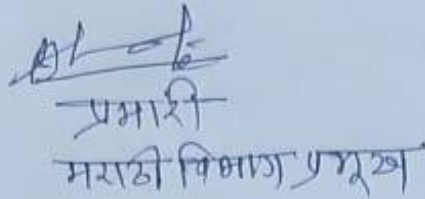 प्रभारी
मराठी विभाग प्रमुख